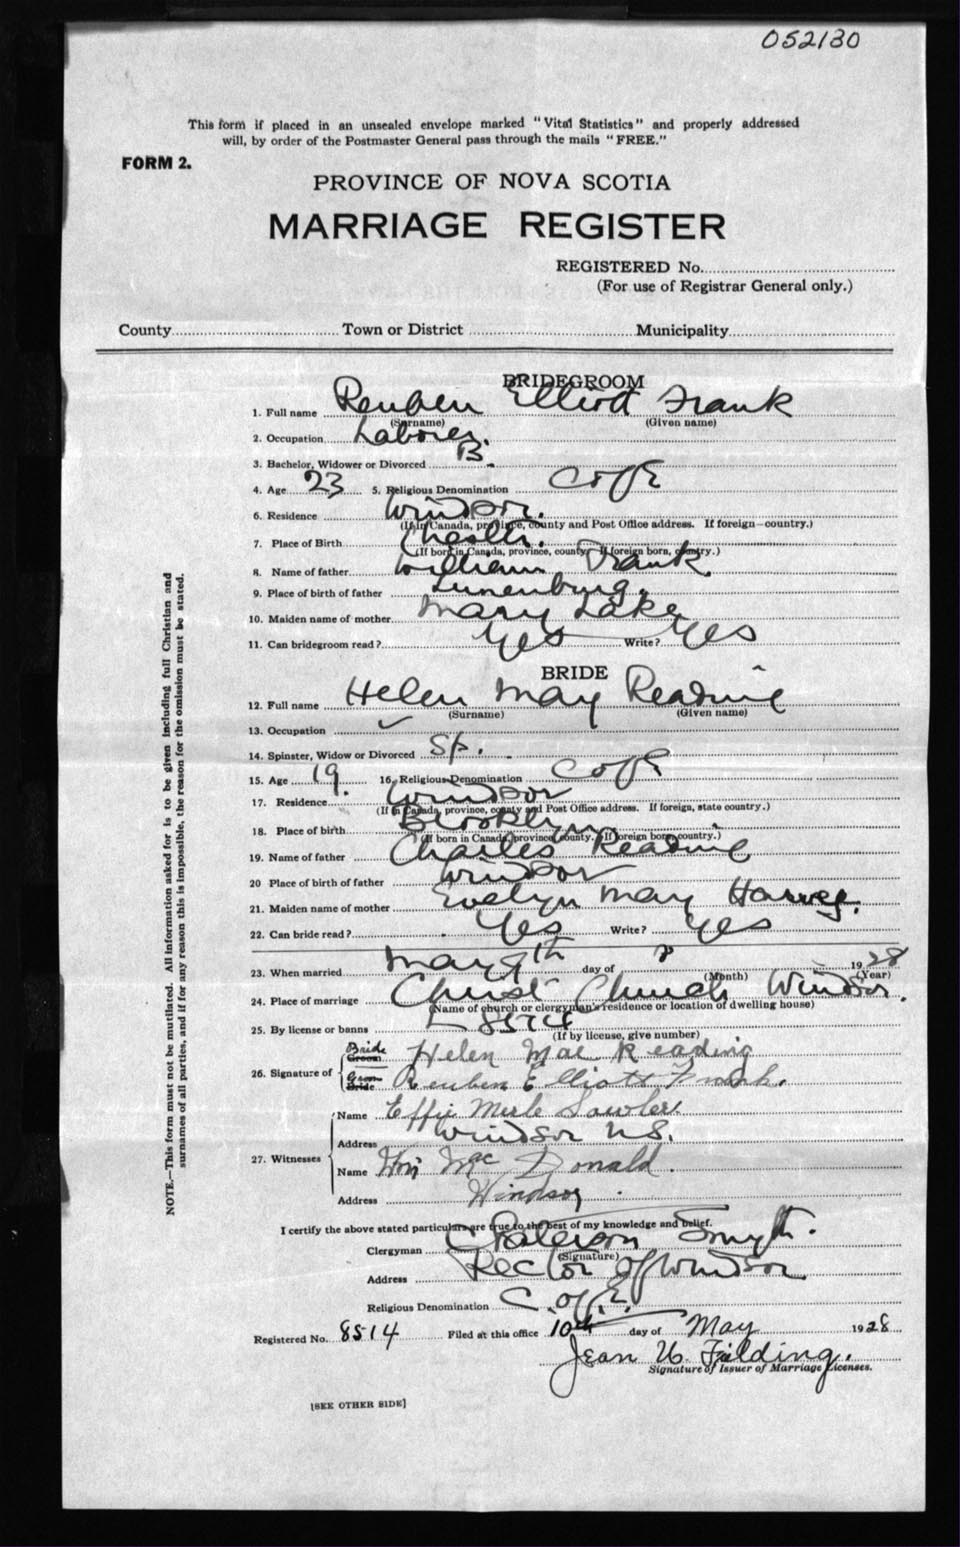 052130
This form if placed in an unsealed envelope marked "Vital Statistics" and properly addressed
will, by order of the Postmaster General pass through the mails "FREE."
FORM 2.
PROVINCE OF NOVA SCOTIA
MARRIAGE REGISTER
REGISTERED No.
(For use of Registrar General only.)
County Town or District Municipality
BRIDEGROOM
1. Full name Reuben Elliott Frank
(Surname) (Given name)
2. Occupation Laborer.
3. Bachelor, Widower or Divorced B.
4. Age 23 5. Religious Denomination C of E
6. Residence Windsor.
(If in Canada, province, county and Post Office address. If foreign—country.)
7. Place of Birth
(If born in Canada, province, county. If foreign born, country.)
8. Name of father William Frank.
9. Place of birth of father Lunenburg.
10. Maiden name of mother Mary Lake
11. Can bridegroom read? Yes Write? Yes
BRIDE
12. Full name Helen May Reading
(Surname) (Given name)
13. Occupation ✓
14. Spinster, Widow or Divorced Sp.
15. Age 19. 16. Religious Denomination C of E
17. Residence Windsor
(If in Canada, province, county and Post Office address. If foreign, state country.)
18. Place of birth Brooklyn
(If born in Canada, province, county. If foreign born, country.)
19. Name of father Charles Reading
20 Place of birth of father Windsor
21. Maiden name of mother Evelyn May Harvey.
22. Can bride read? Yes Write? Yes
23. When married May 9th day of 1928
(Month) (Year)
24. Place of marriage Christ Church Windsor.
(Name of church or clergyman's residence or location of dwelling house)
25. By license or banns L 8514
(If by license, give number)
Bride
Groom
26. Signature of Helen Mae Reading
Groom
Bride
Reuben Elliott Frank.
Name Effie Merle Sawler.
Address Windsor N.S.
27. Witnesses
Name Wm MacDonald.
Address Windsor.
I certify the above stated particulars are true to the best of my knowledge and belief.
Clergyman Paterson Smyth.
(Signature)
Address Rector of Windsor
Religious Denomination C. of E.
Registered No. 8514 Filed at this office 10th day of May 1928
Jean W. Fielding.
Signature of Issuer of Marriage Licenses.
[SEE OTHER SIDE]
NOTE.—This form must not be mutilated. All information asked for is to be given including full Christian and
surnames of all parties, and if for any reason this is impossible, the reason for the omission must be stated.